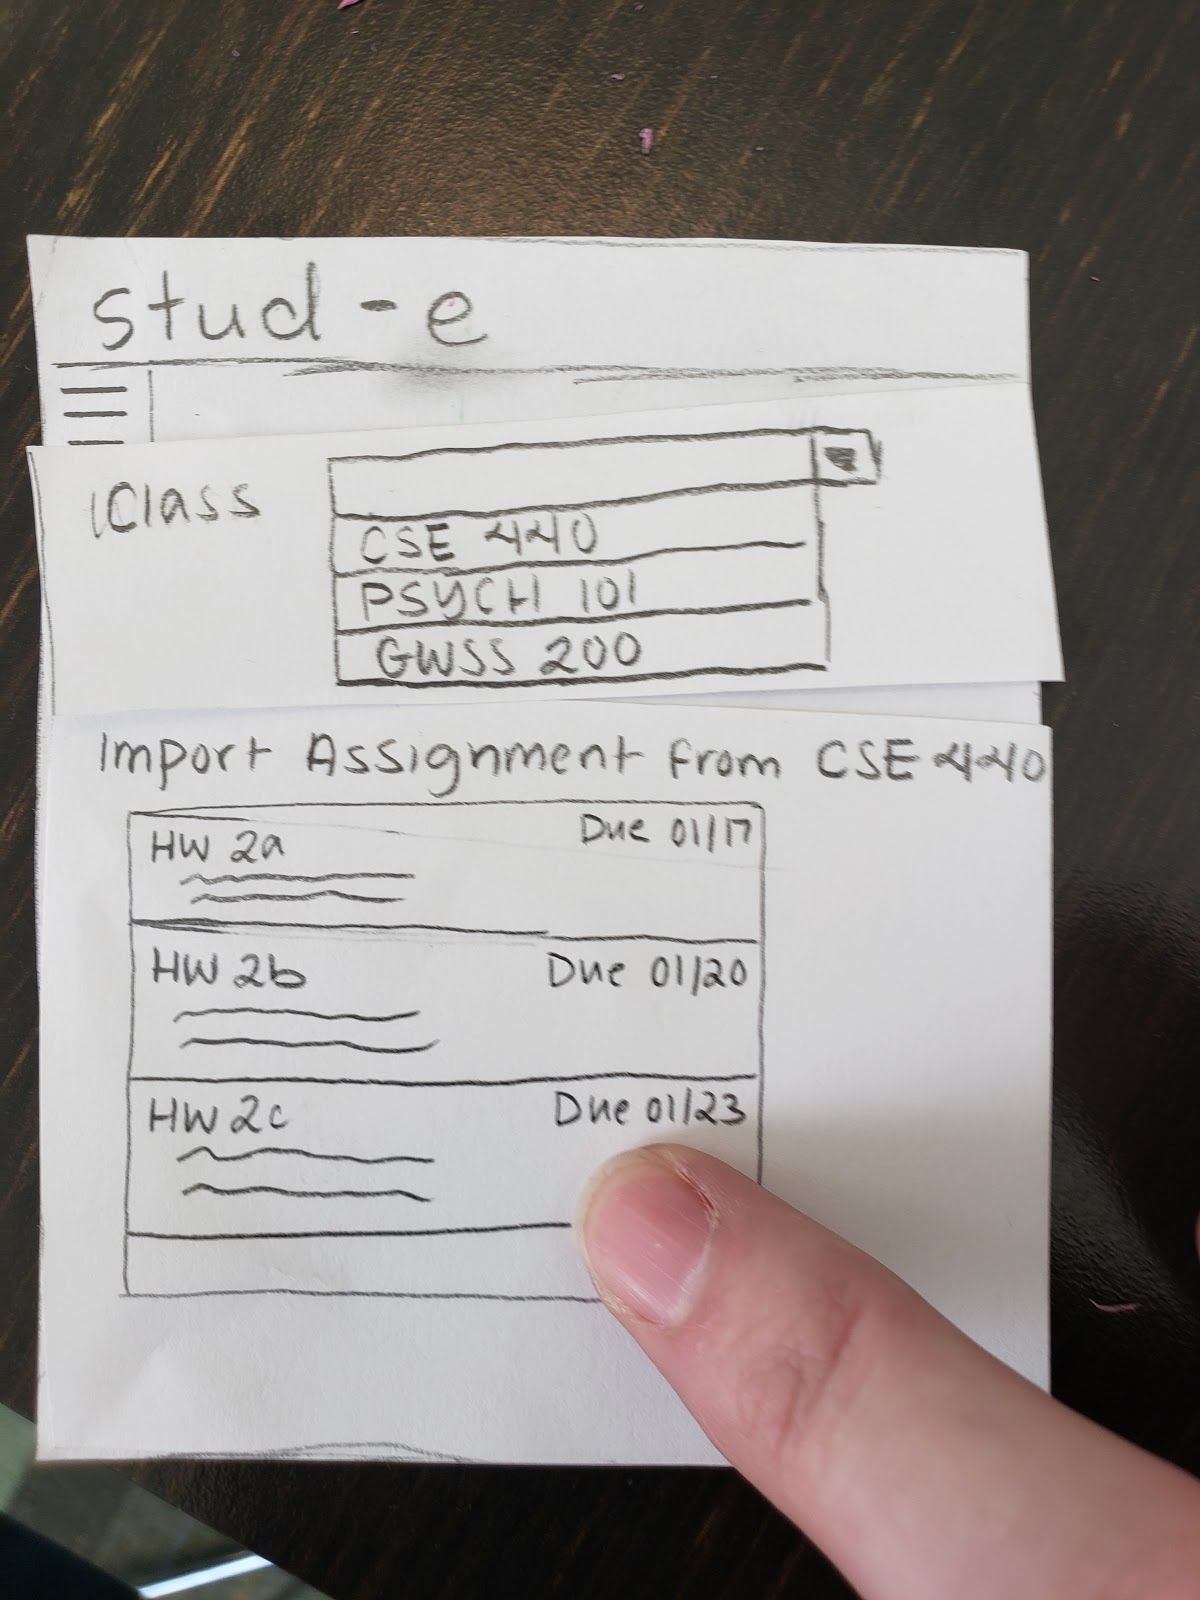 stud-e
Class
CSE 440
PSYCH 101
GWSS 200
Import Assignment from CSE 440
HW 2a Due 01/17
HW 2b Due 01/20
HW 2c Due 01/23